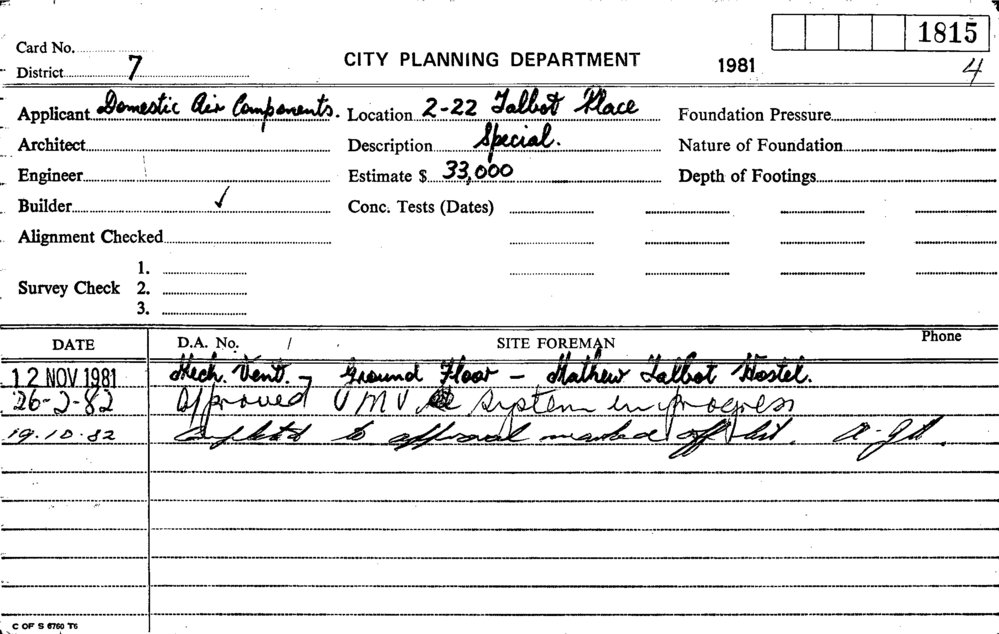 1815
Card No.
CITY PLANNING DEPARTMENT 1981 4
District 7
Applicant Domestic Air Components. Location 2-22 Talbot Place Foundation Pressure
Architect Description Special. Nature of Foundation
Engineer Estimate $ 33,000 Depth of Footings
Builder ✓ Conc. Tests (Dates)
Alignment Checked
1.
Survey Check 2.
3.
DATE D.A. No. / SITE FOREMAN Phone
12 NOV 1981 Mech. Vent. - Ground Floor - Mathew Talbot Hostel.
26-2-82 Approved V M V system in progress
19.10.82 Completed to approval marked off list.
C OF S 6760 T6